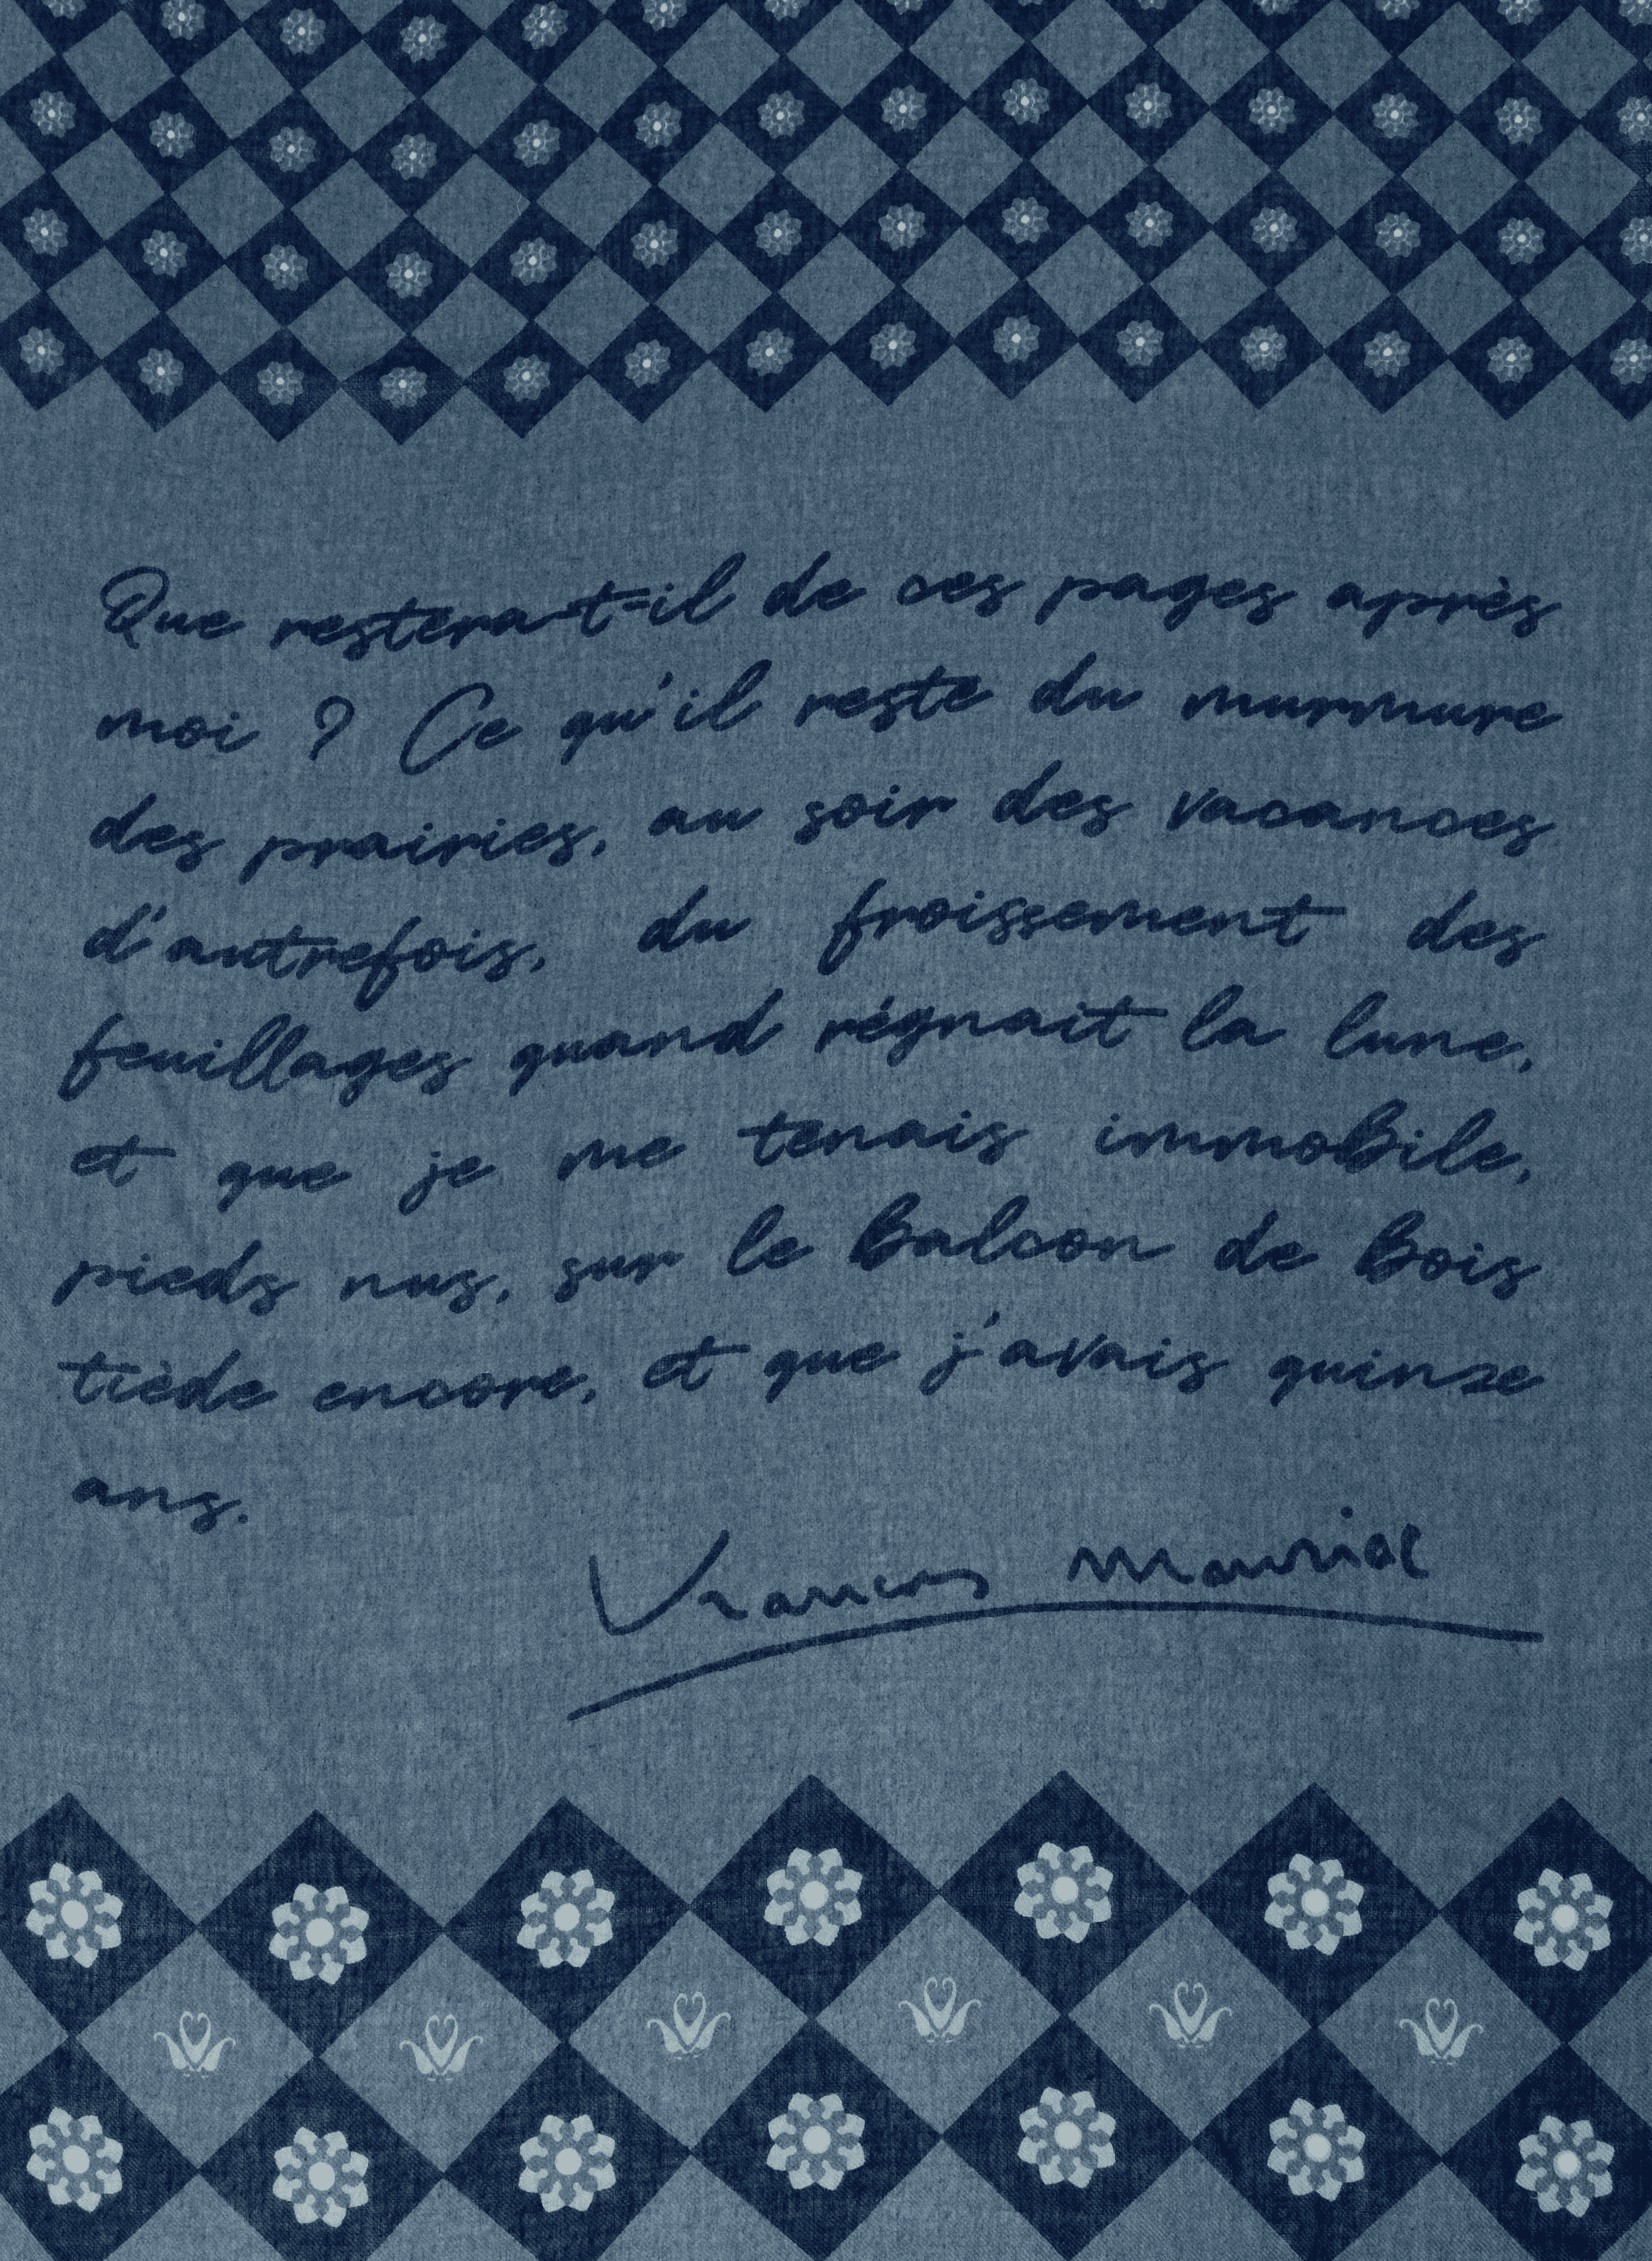 Que restera-t-il de ces pages après
moi ? Ce qu'il reste du murmure
des prairies, au soir des vacances
d'autrefois, du froissement des
feuillages quand régnait la lune,
et que je me tenais immobile,
pieds nus, sur le balcon de bois
tiède encore, et que j'avais quinze
ans.
François Mauriac